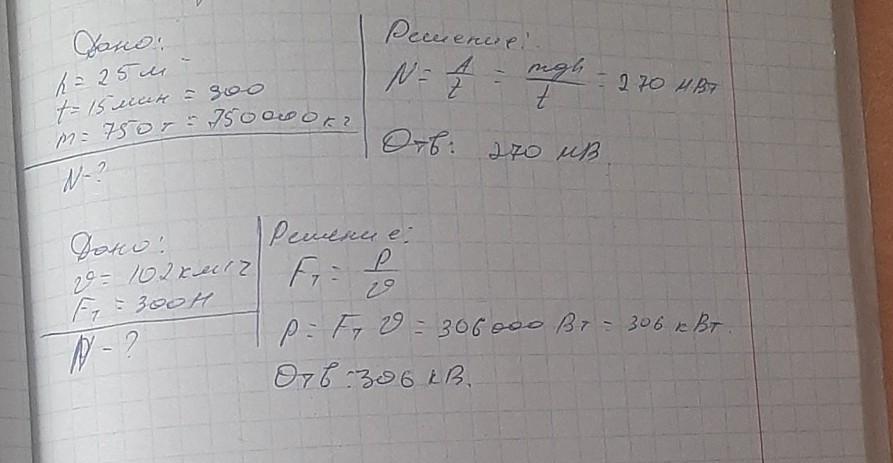 Дано:
h = 25 м
t = 15 мин = 300
m = 750 т = 750000 кг
N - ?
Решение:
N = A/t = mgh/t = 270 МВт
Отв: 270 МВ.
Дано:
υ = 102 км/ч
Fт = 300 Н
N - ?
Решение:
Fт = P/υ
P = Fт υ = 306000 Вт = 306 кВт.
Отв: 306 кВ.